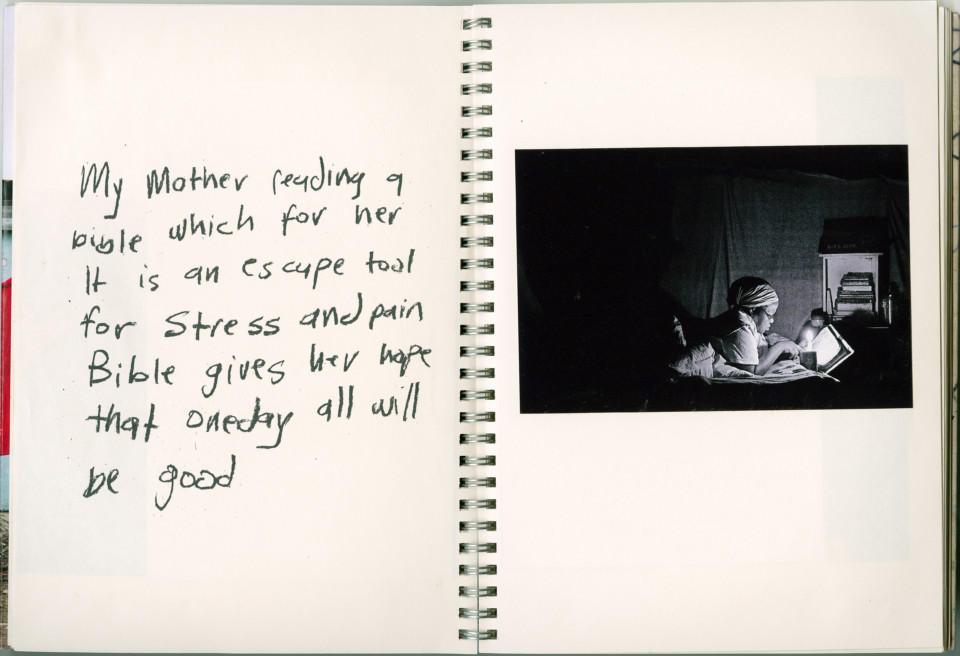 My Mother reading a
bible which for her
It is an escape tool
for Stress and pain
Bible gives her hope
that oneday all will
be good